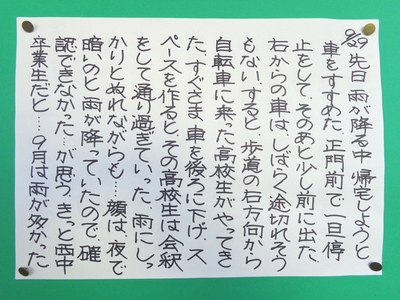 9/29 先日 雨が降る中 帰宅しようと
車をすすめた。正門前で一旦停
止をして、そのあと少し前に出た。
右からの車は、しばらく途切れそう
もない。すると、歩道の右方向から
自転車に乗った高校生がやってき
た。すぐさま 車を後ろに下げ、ス
ペースを作ると、その高校生は会釈
をして通り過ぎていった。雨にしっ
かりとぬれながらも…。顔は、夜で
暗いのと、雨が降っていたので、確
認できなかった…が思う。きっと西中
卒業生だと…。9月は雨が多かった